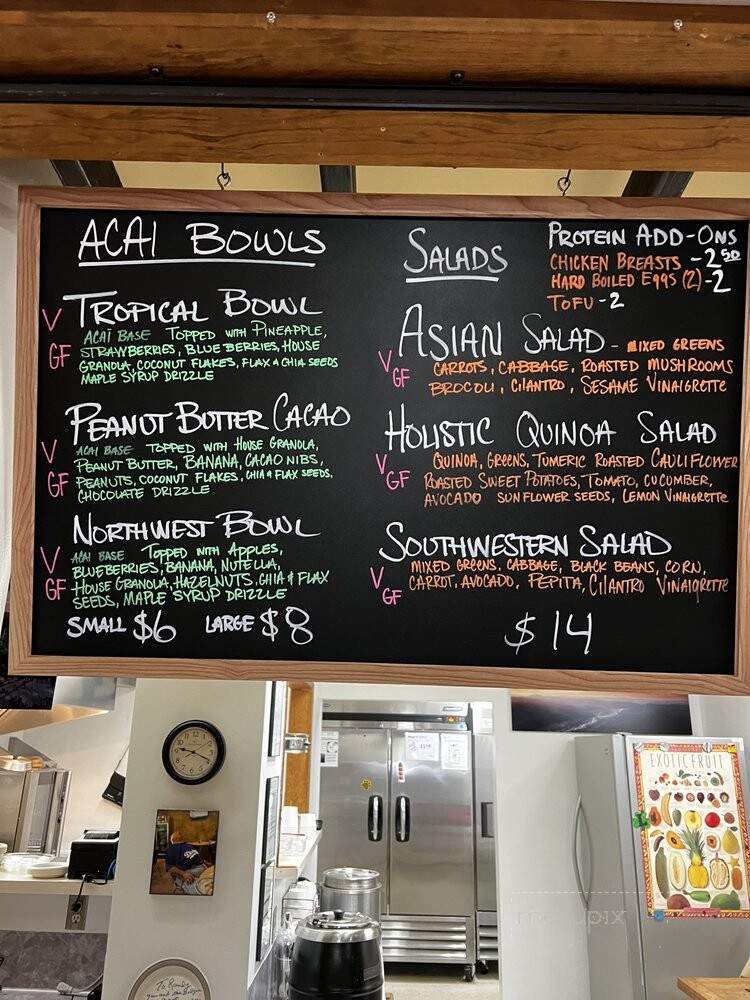 ACAI BOWLS
V
GF
TROPICAL BOWL
ACAI BASE TOPPED WITH PINEAPPLE,
STRAWBERRIES, BLUEBERRIES, HOUSE
GRANOLA, COCONUT FLAKES, FLAX & CHIA SEEDS
MAPLE SYRUP DRIZZLE
V
GF
PEANUT BUTTER CACAO
ACAI BASE TOPPED WITH HOUSE GRANOLA,
PEANUT BUTTER, BANANA, CACAO NIBS,
PEANUTS, COCONUT FLAKES, CHIA & FLAX SEEDS,
CHOCOLATE DRIZZLE
V
GF
NORTHWEST BOWL
ACAI BASE TOPPED WITH APPLES,
BLUEBERRIES, BANANA, NUTELLA,
HOUSE GRANOLA, HAZELNUTS, CHIA & FLAX
SEEDS, MAPLE SYRUP DRIZZLE
SMALL $6 LARGE $8
SALADS
PROTEIN ADD-ONS
CHICKEN BREASTS - 2.50
HARD BOILED EGGS (2) - 2
TOFU - 2
V
GF
ASIAN SALAD - MIXED GREENS
CARROTS, CABBAGE, ROASTED MUSHROOMS
BROCOLI, CILANTRO, SESAME VINAIGRETTE
V
GF
HOLISTIC QUINOA SALAD
QUINOA, GREENS, TUMERIC ROASTED CAULIFLOWER
ROASTED SWEET POTATOES, TOMATO, CUCUMBER,
AVOCADO SUNFLOWER SEEDS, LEMON VINAIGRETTE
V
GF
SOUTHWESTERN SALAD
MIXED GREENS, CABBAGE, BLACK BEANS, CORN,
CARROT, AVOCADO, PEPITA, CILANTRO VINAIGRETTE
$14
EXOTIC FRUIT